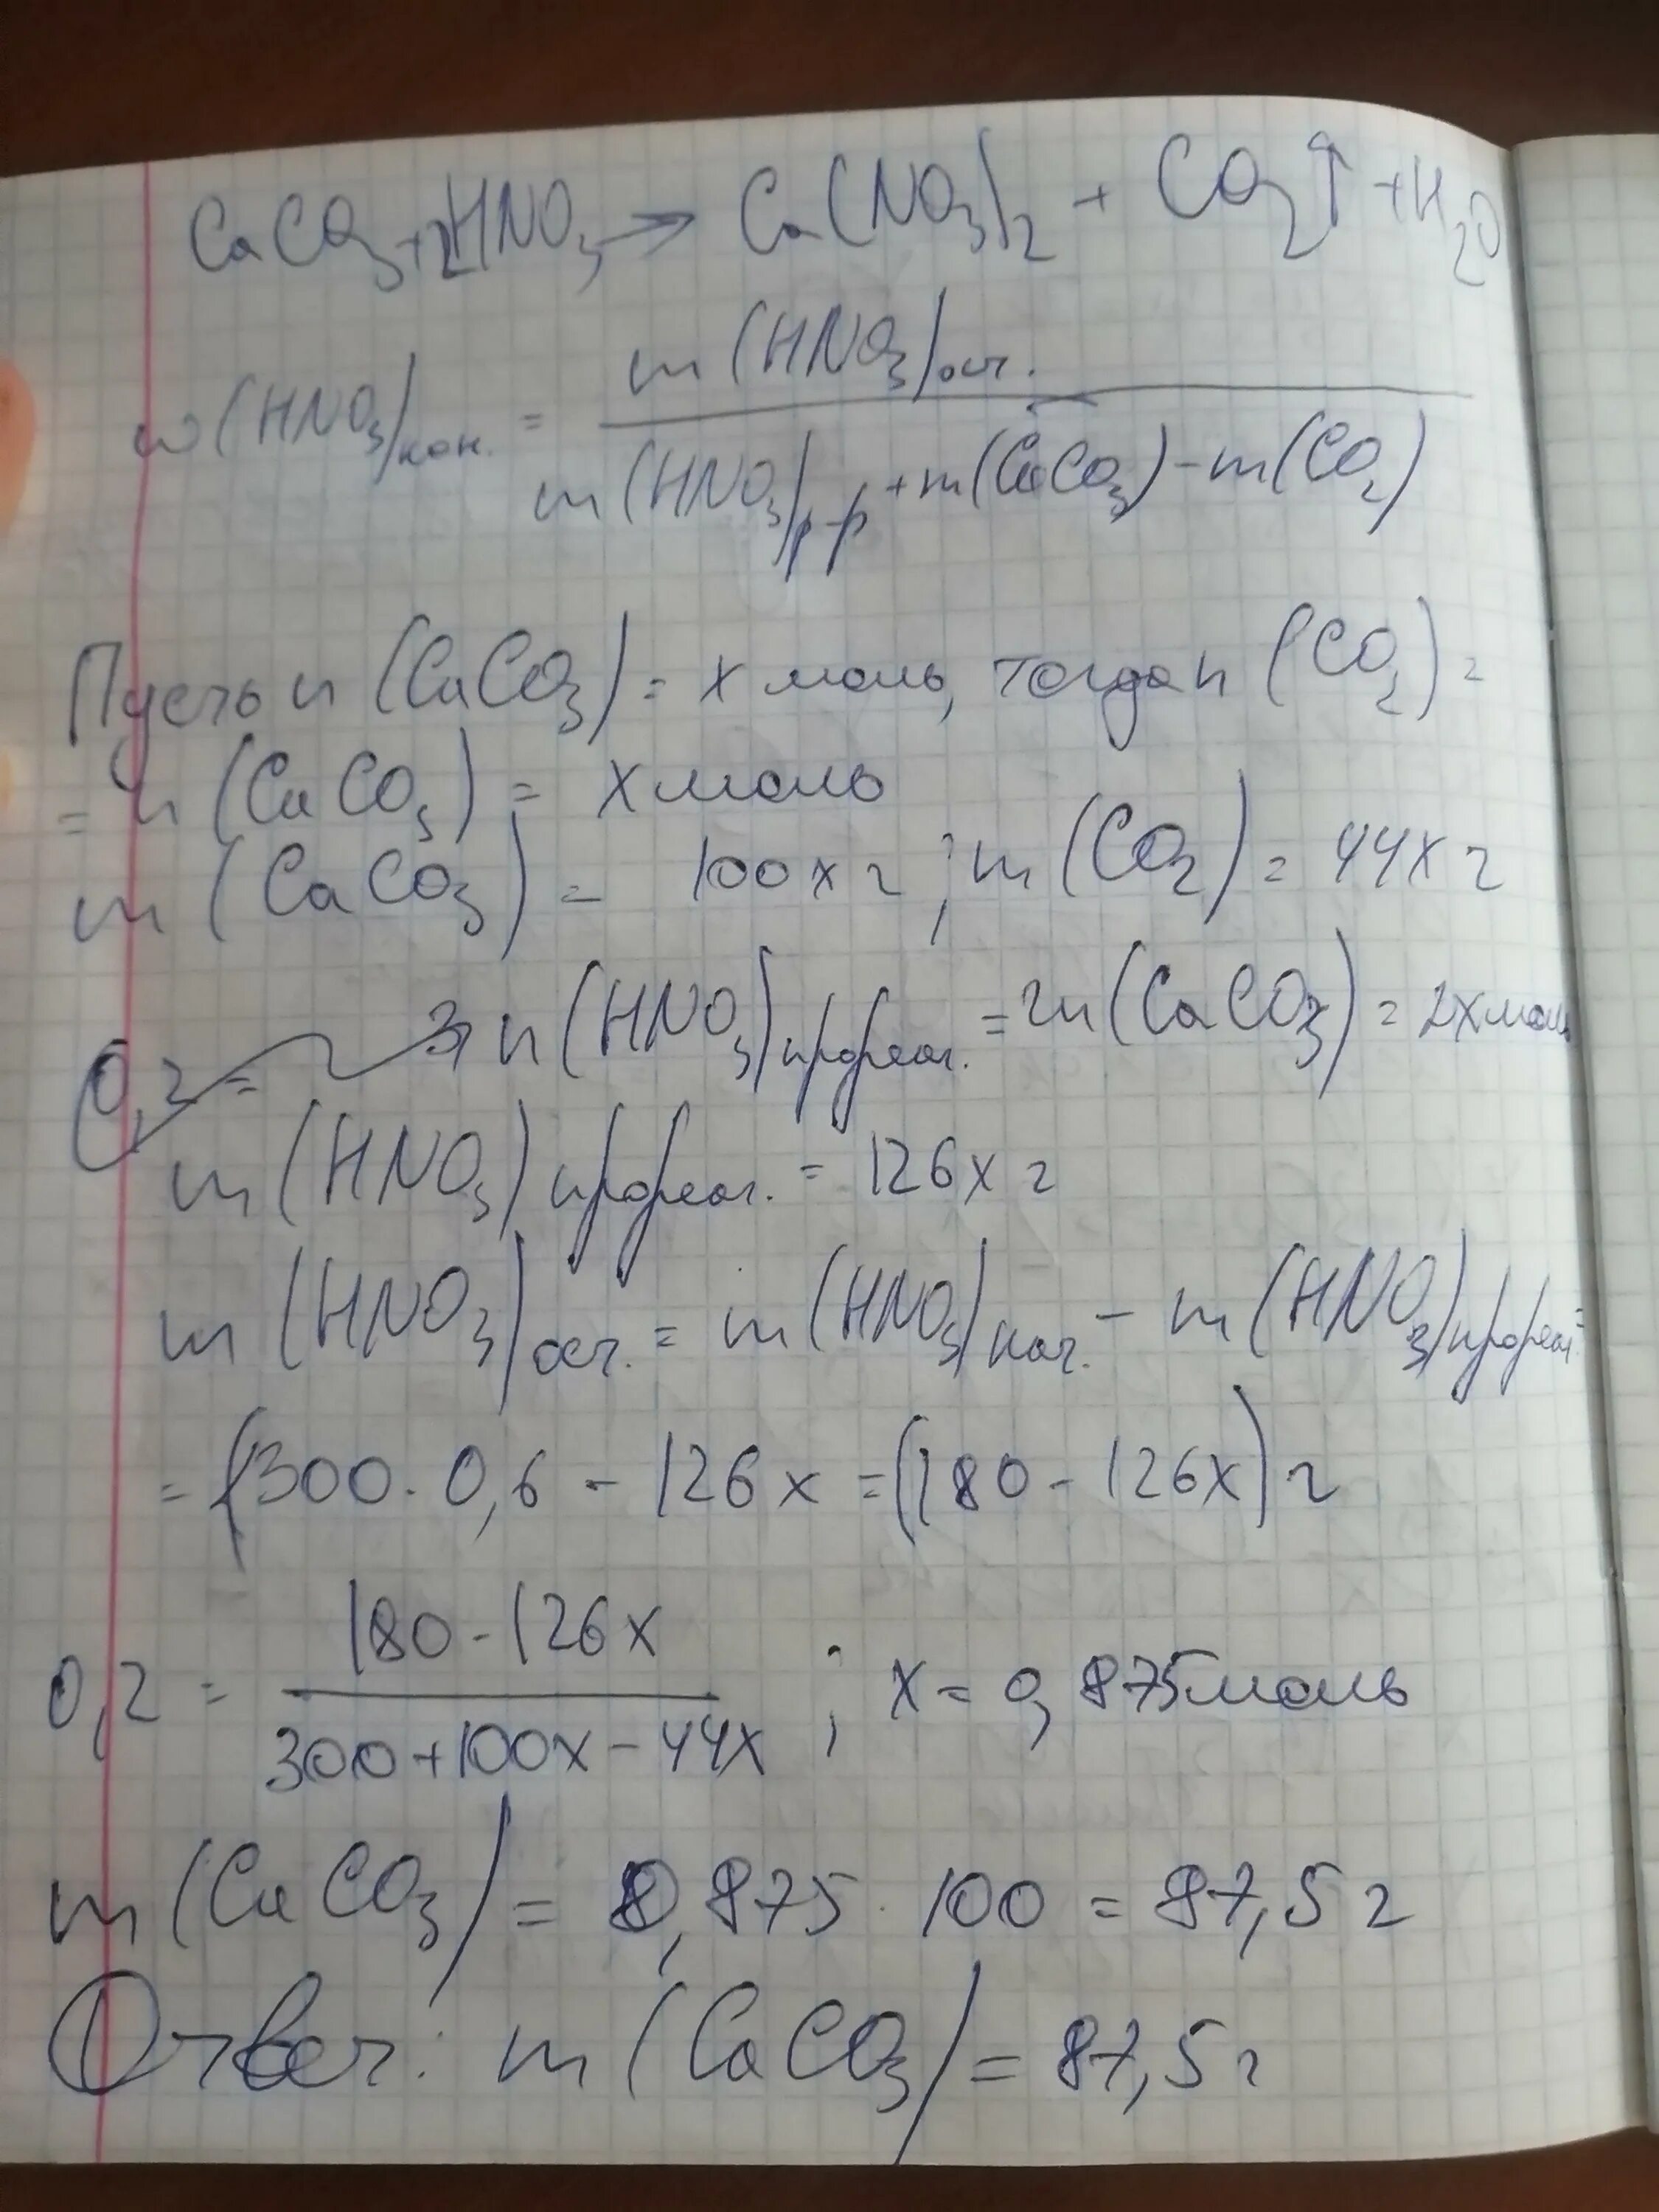 CaCO₃+2HNO₃→ Ca(NO₃)₂ + CO₂↑ +H₂O
w(HNO₃)кон. = m(HNO₃)ост. / m(HNO₃)р-р +m(CaCO₃)-m(CO₂)
Пусть n(CaCO₃)= x моль, тогда n(CO₂)=
= n(CaCO₃) = x моль
m(CaCO₃) = 100x г ; m(CO₂)= 44x г
0,2 = n(HNO₃)прореаг. =2n(CaCO₃)= 2x моль
m(HNO₃)прореаг. = 126x г
m(HNO₃)ост. = m(HNO₃)нач. - m(HNO₃)прореаг.=
= (300·0,6 - 126x =(180-126x)г
0,2 = 180-126x / 300+100x-44x ; x= 0,875моль
m(CaCO₃)= 0,875·100 = 87,5 г
Ответ: m(CaCO₃)= 87,5 г